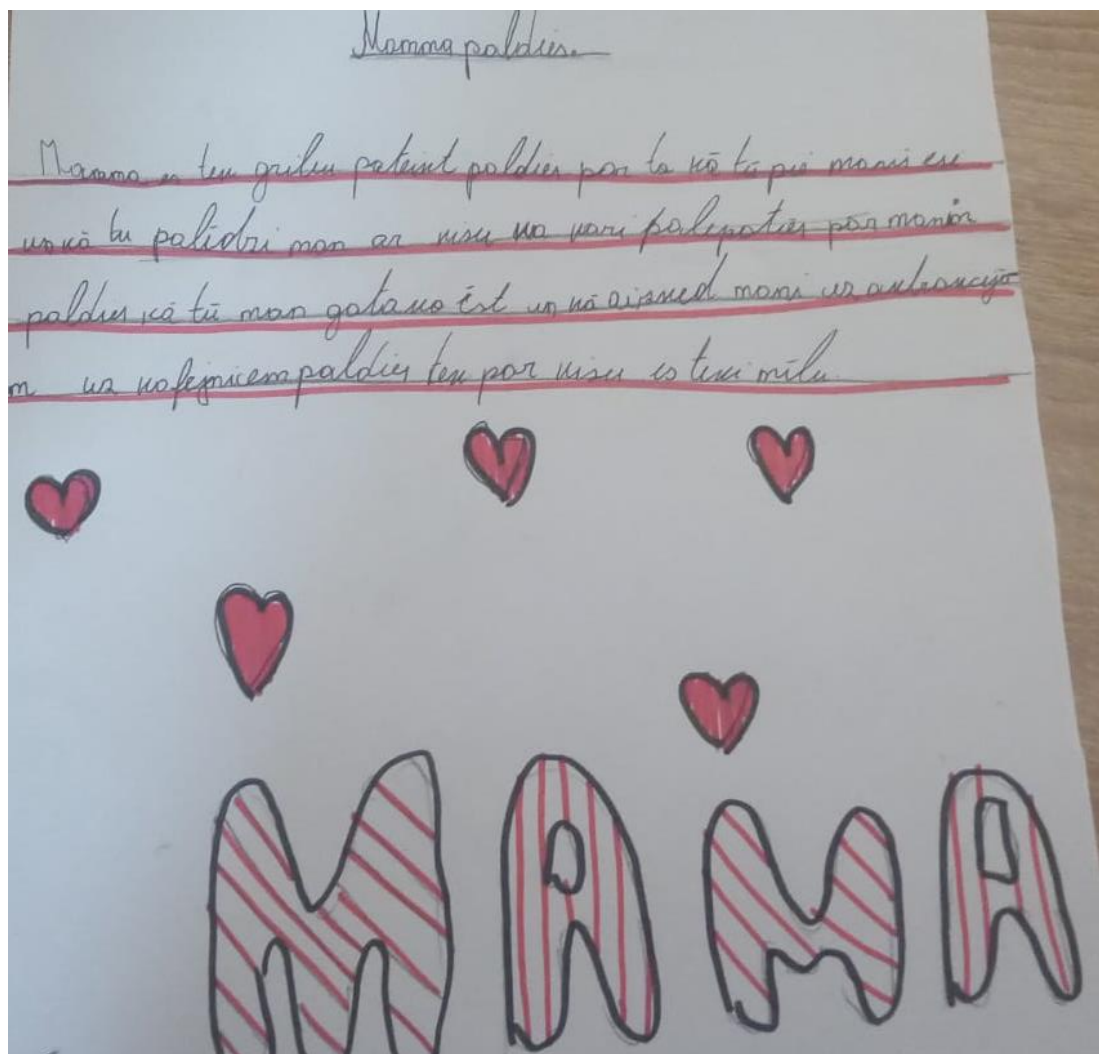 Mamma paldies.
Mamma es tev gribu pateikt paldies par to kā tu pie manis esi
un kā tu palīdzi man ar visu ko vari parūpēties par manim
paldies kā tū man gatavo ēst un kā aizved mani uz
m uz kafejnīcem paldies tev par visu es tevi mīlu
MAMA